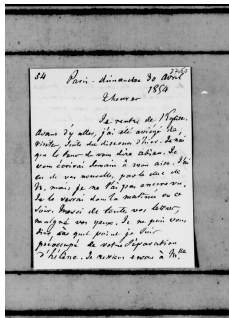 54 Paris. dimanche 30 avril
1854
2 heures
Je rentre de l'Eglise.
Avant d'y aller, j'ai été assiégé de
visites, suite du discours d'hier. Je n'ai
que le temps de vous dire adieu. Je
vous écrirai demain à mon aise. J'ai
eu de vos nouvelles, par le duc de
N. mais je ne l'ai pas encore vu.
Je le verrai dans la matinée ou ce
soir. Merci de toutes vos lettres,
malgré vos yeux. Je ne puis vous
dire à quel point je suis
préoccupé de votre séparation
d'hélène. Je reviens encore à Mlle